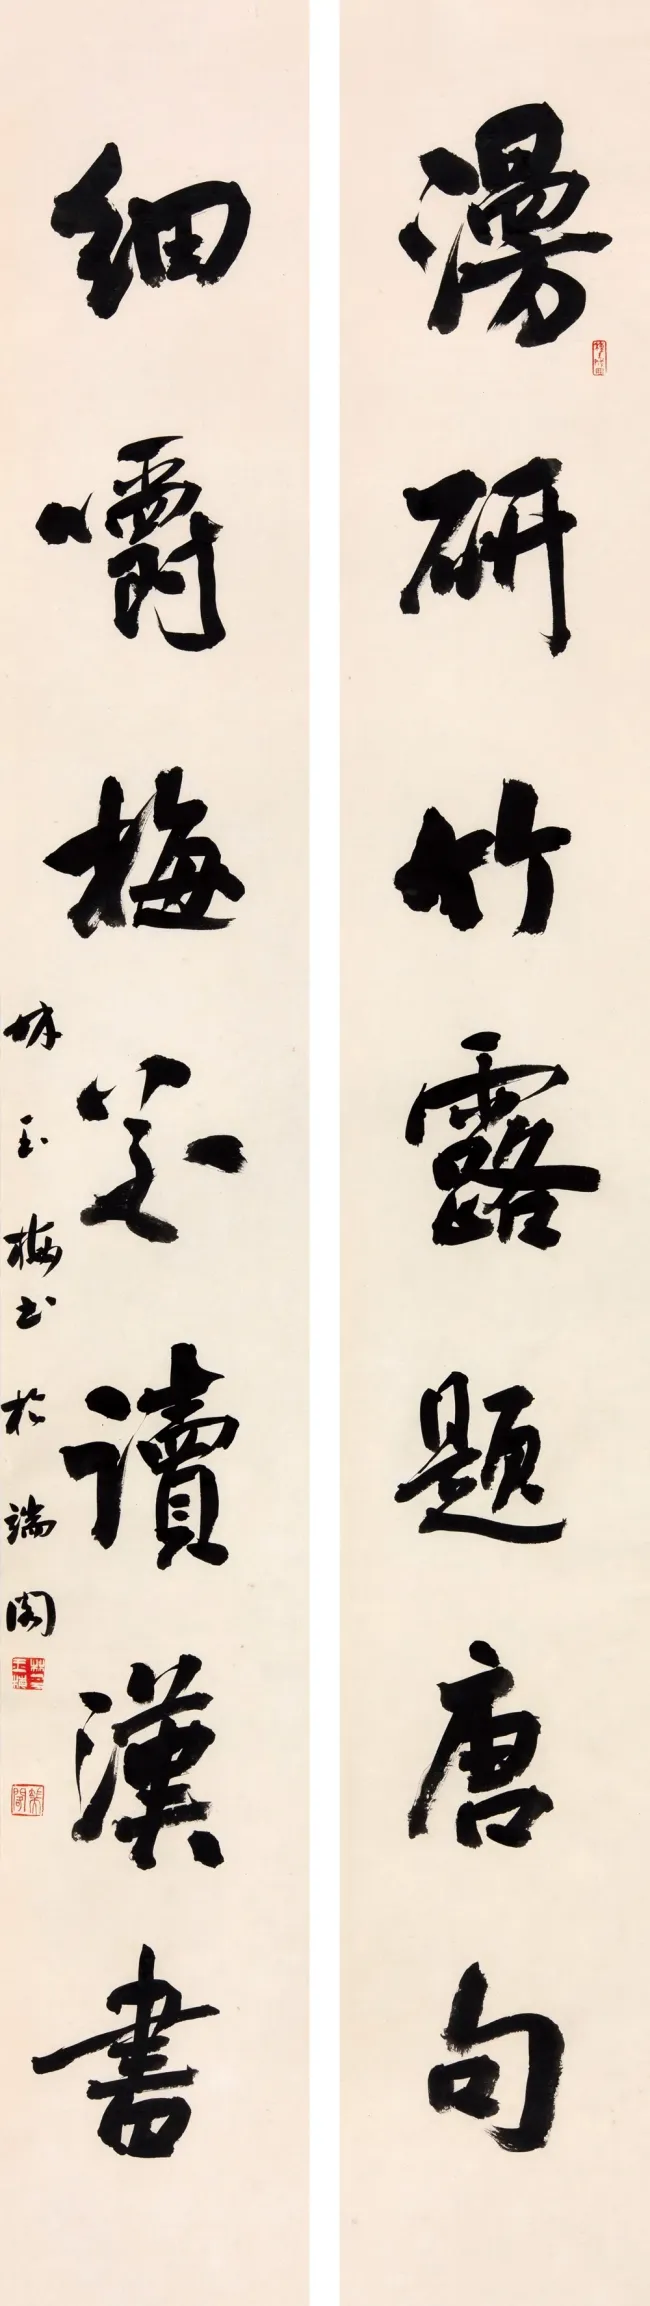 漫研竹露題唐句
細嚼梅花讀漢書
林玉梅书於端阁